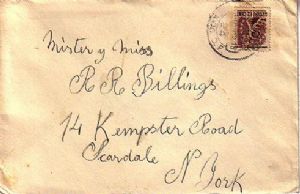 Mister y Miss
R R Billings
14 Kempster Road
Scardale
N. York